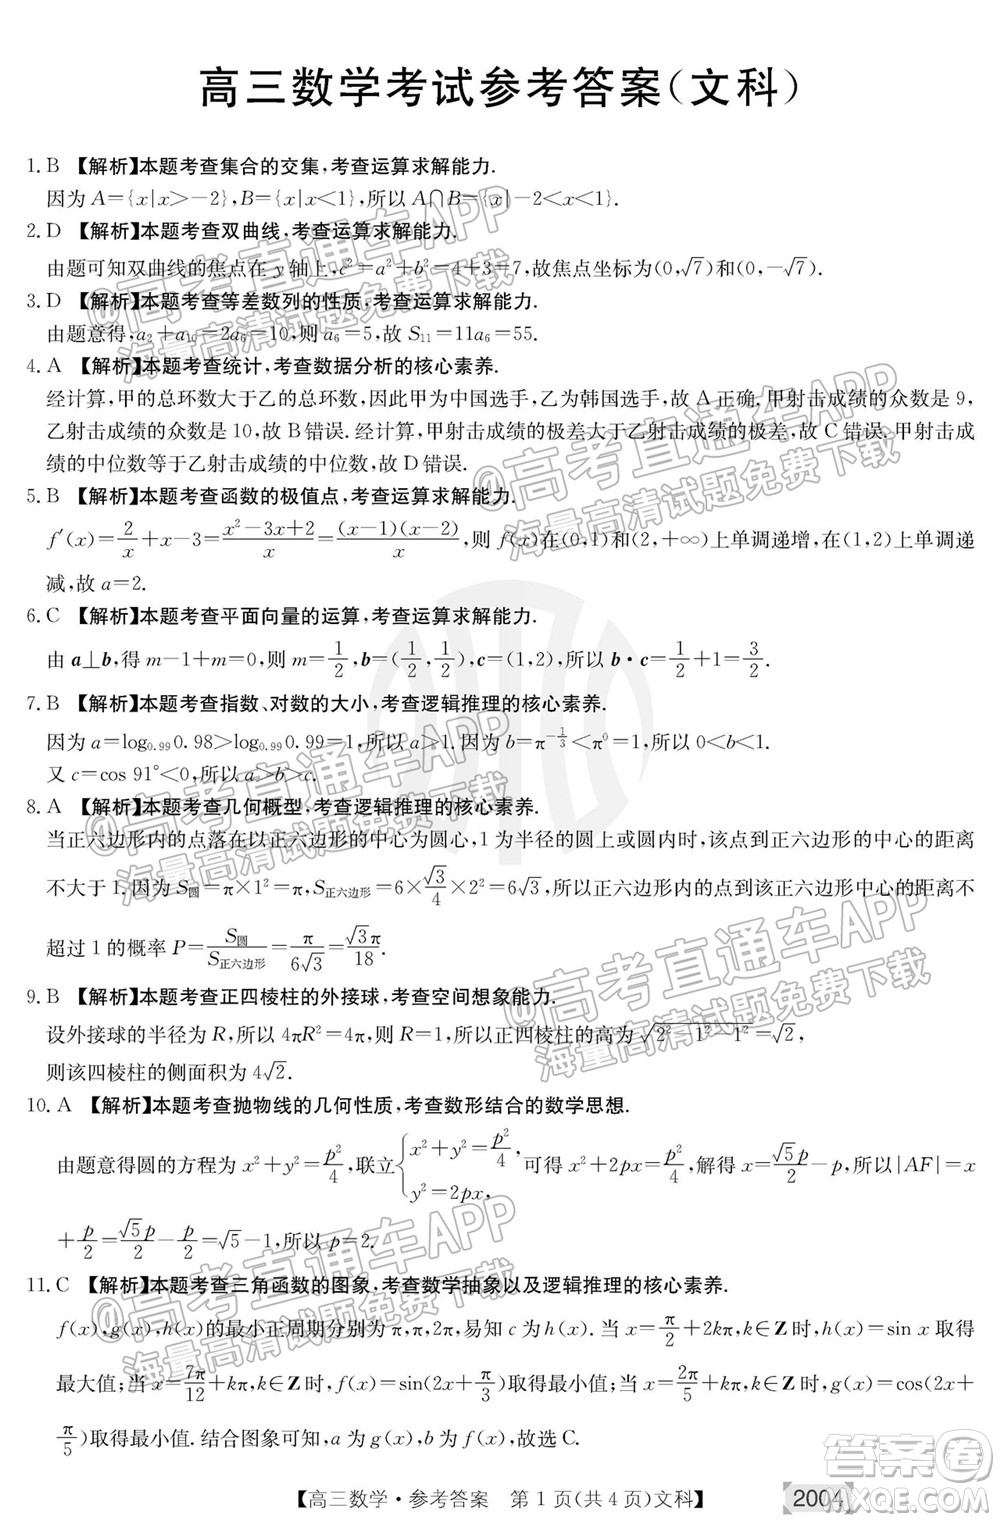 高三数学考试参考答案(文科)
1. B 【解析】本题考查集合的交集,考查运算求解能力.
因为 A={x|x>-2},B={x|x<1},所以 A∩B={x|-2<x<1}.
2. D 【解析】本题考查双曲线,考查运算求解能力.
由题可知双曲线的焦点在 y 轴上,c²=a²+b²=4+3=7,故焦点坐标为(0,√7)和(0,-√7).
3. D 【解析】本题考查等差数列的性质,考查运算求解能力.
由题意得,a₂+a₁₀=2a₆=10,则 a₆=5,故 S₁₁=11a₆=55.
4. A 【解析】本题考查统计,考查数据分析的核心素养.
经计算,甲的总环数大于乙的总环数,因此甲为中国选手,乙为韩国选手,故 A 正确.甲射击成绩的众数是 9,
乙射击成绩的众数是 10,故 B 错误.经计算,甲射击成绩的极差大于乙射击成绩的极差,故 C 错误.甲射击成
绩的中位数等于乙射击成绩的中位数,故 D 错误.
5. B 【解析】本题考查函数的极值点,考查运算求解能力.
f′(x)=2/x+x-3=(x²-3x+2)/x=(x-1)(x-2)/x,则 f(x)在(0,1)和(2,+∞)上单调递增,在(1,2)上单调递
减,故 a=2.
6. C 【解析】本题考查平面向量的运算,考查运算求解能力.
由 a⊥b,得 m-1+m=0,则 m=1/2,b=(1/2,1/2),c=(1,2),所以 b·c=1/2+1=3/2.
7. B 【解析】本题考查指数、对数的大小,考查逻辑推理的核心素养.
因为 a=log₀.₉₉0.98>log₀.₉₉0.99=1,所以 a>1.因为 b=π^(-1/3)<π⁰=1,所以 0<b<1.
又 c=cos 91°<0,所以 a>b>c.
8. A 【解析】本题考查几何概型,考查逻辑推理的核心素养.
当正六边形内的点落在以正六边形的中心为圆心,1 为半径的圆上或圆内时,该点到正六边形的中心的距离
不大于 1.因为 S圆=π×1²=π,S正六边形=6×√3/4×2²=6√3,所以正六边形内的点到该正六边形的中心的距离不
超过 1 的概率 P=S圆/S正六边形=π/(6√3)=√3π/18.
9. B 【解析】本题考查正四棱柱的外接球,考查空间想象能力.
设外接球的半径为 R,所以 4πR²=4π,则 R=1,所以正四棱柱的高为√(2²-1²-1²)=√2,
则该四棱柱的侧面积为 4√2.
10. A 【解析】本题考查抛物线的几何性质,考查数形结合的数学思想.
由题意得圆的方程为 x²+y²=p²/4,联立{x²+y²=p²/4, y²=2px,可得 x²+2px=p²/4,解得 x=√5p/2-p,所以|AF|=x
+p/2=√5p/2-p/2=√5-1,所以 p=2.
11. C 【解析】本题考查三角函数的图象,考查数学抽象以及逻辑推理的核心素养.
f(x),g(x),h(x)的最小正周期分别为 π,π,2π,易知 c 为 h(x).当 x=π/2+2kπ,k∈Z 时,h(x)=sin x 取得
最大值;当 x=7π/12+kπ,k∈Z 时,f(x)=sin(2x+π/3)取得最小值;当 x=2π/5+kπ,k∈Z 时,g(x)=cos(2x+
π/5)取得最小值.结合图象可知,a 为 g(x),b 为 f(x),故选 C.
【高三数学·参考答案 第 1 页(共 4 页)文科】
2004
@高考直通车APP
海量高清试题免费下载
@高考直通车APP
海量高清试题免费下载
@高考直通车APP
海量高清试题免费下载
@高考直通车APP
海量高清试题免费下载
@高考直通车APP
海量高清试题免费下载
答案圈
MXQE.COM